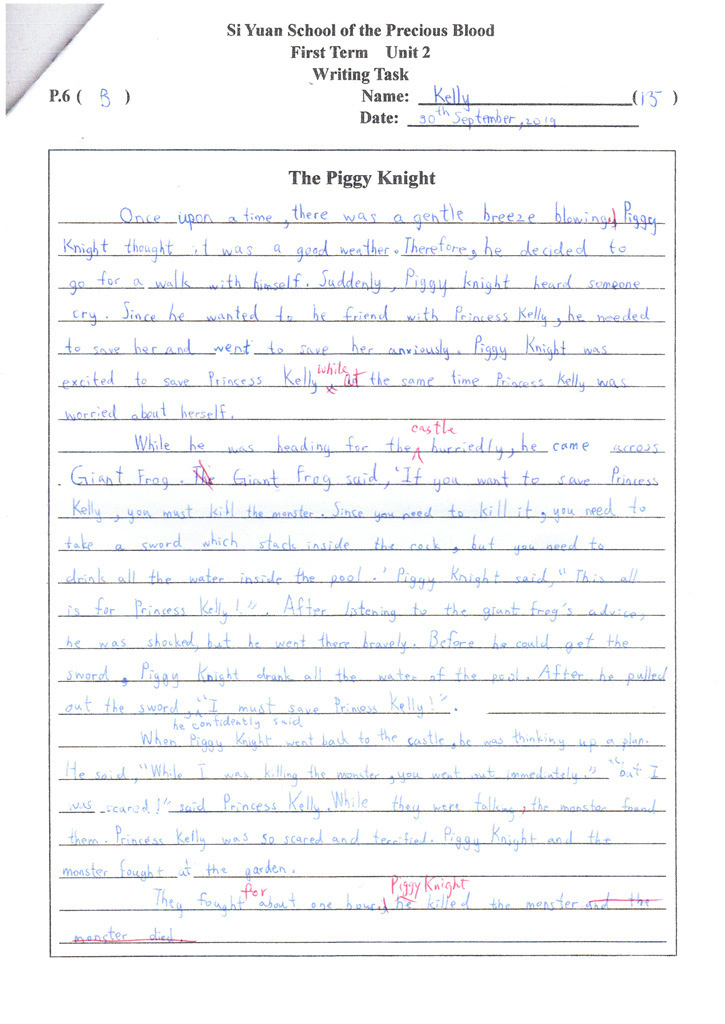 Si Yuan School of the Precious Blood
First Term Unit 2
Writing Task
P.6 ( B ) Name: Kelly (15)
Date: 30th September, 2019
The Piggy Knight
Once upon a time, there was a gentle breeze blowing. Piggy
Knight thought it was a good weather. Therefore, he decided to
go for a walk with himself. Suddenly, Piggy Knight heard someone
cry. Since he wanted to be friend with Princess Kelly, he needed
to save her and went to save her anxiously. Piggy Knight was
while
excited to save Princess Kelly at the same time Princess Kelly was
worried about herself.
castle
While he was heading for the hurriedly, he came across
Giant Frog. Giant Frog said, 'If you want to save Princess
Kelly, you must kill the monster. Since you need to kill it, you need to
take a sword which stack inside the rock, but you need to
drink all the water inside the pool.' Piggy Knight said, "This all
is for Princess Kelly!". After listening to the giant frog's advice,
he was shocked, but he went there bravely. Before he could get the
sword, Piggy Knight drank all the water of the pool. After he pulled
out the sword, "I must save Princess Kelly!".
he confidently said
When Piggy Knight went back to the castle, he was thinking up a plan.
He said, "While I was killing the monster, you went out immediately." "but I
was scared!" said Princess Kelly. While they were talking, the monster found
them. Princess Kelly was so scared and terrified. Piggy Knight and the
monster fought at the garden.
for Piggy Knight
They fought about one hour he killed the monster and the
monster died